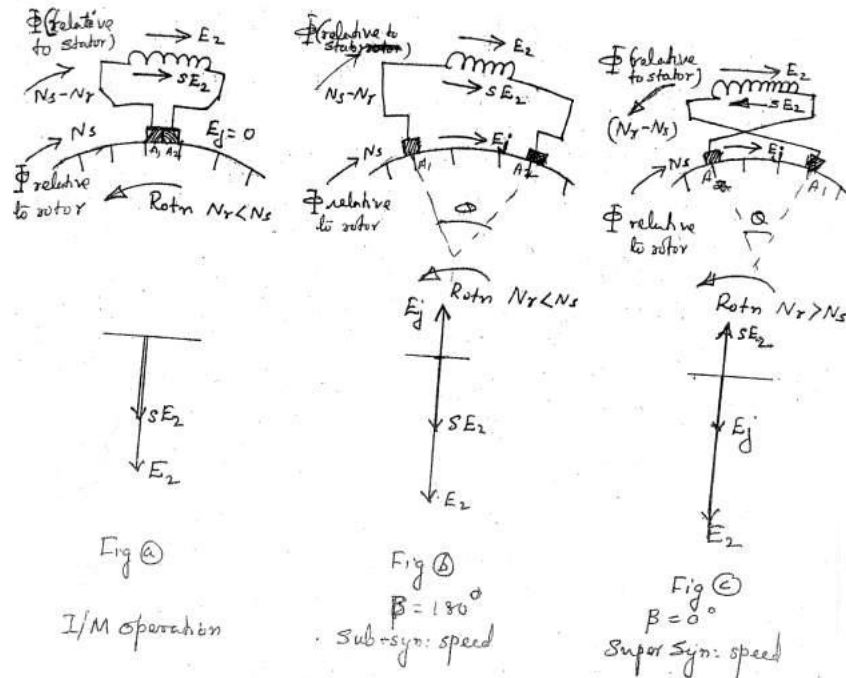 Φ (relative
to stator)
E2
sE2
Ns-Nr
Ns
Ej=0
A1 A2
Φ relative
to rotor
Rotn Nr<Ns
sE2
E2
Fig (a)
I/M operation
Φ (relative to
stator)
E2
sE2
Ns-Nr
Ns
Ej
A1
A2
Φ relative
to rotor
Θ
Rotn Nr<Ns
Ej
sE2
E2
Fig (b)
β = 180°
Sub-syn: speed
Φ (relative
to stator)
E2
sE2
(Nr-Ns)
Ns
Ej
A
A1
Φ relative
to rotor
Θ
Rotn Nr>Ns
sE2
Ej
E2
Fig (c)
β = 0°
Super Syn: speed